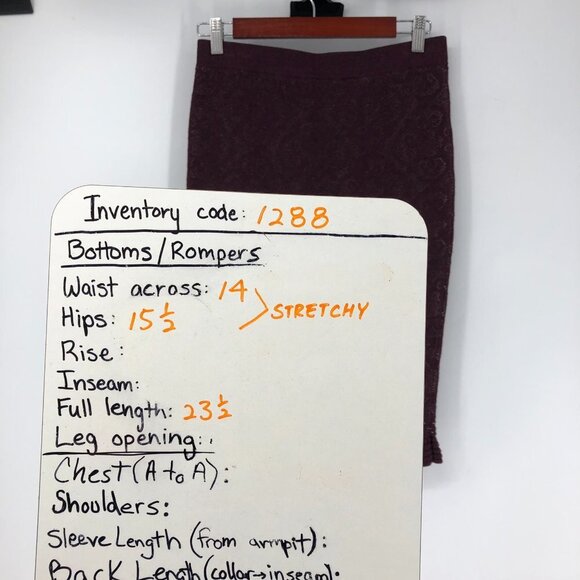 Inventory code: 1288
Bottoms/Rompers
Waist across: 14
STRETCHY
Hips: 15 1/2
Rise:
Inseam:
Full length: 23 1/2
Leg opening:
Chest (A to A):
Shoulders:
Sleeve Length (from armpit):
Back Length (collar→inseam):